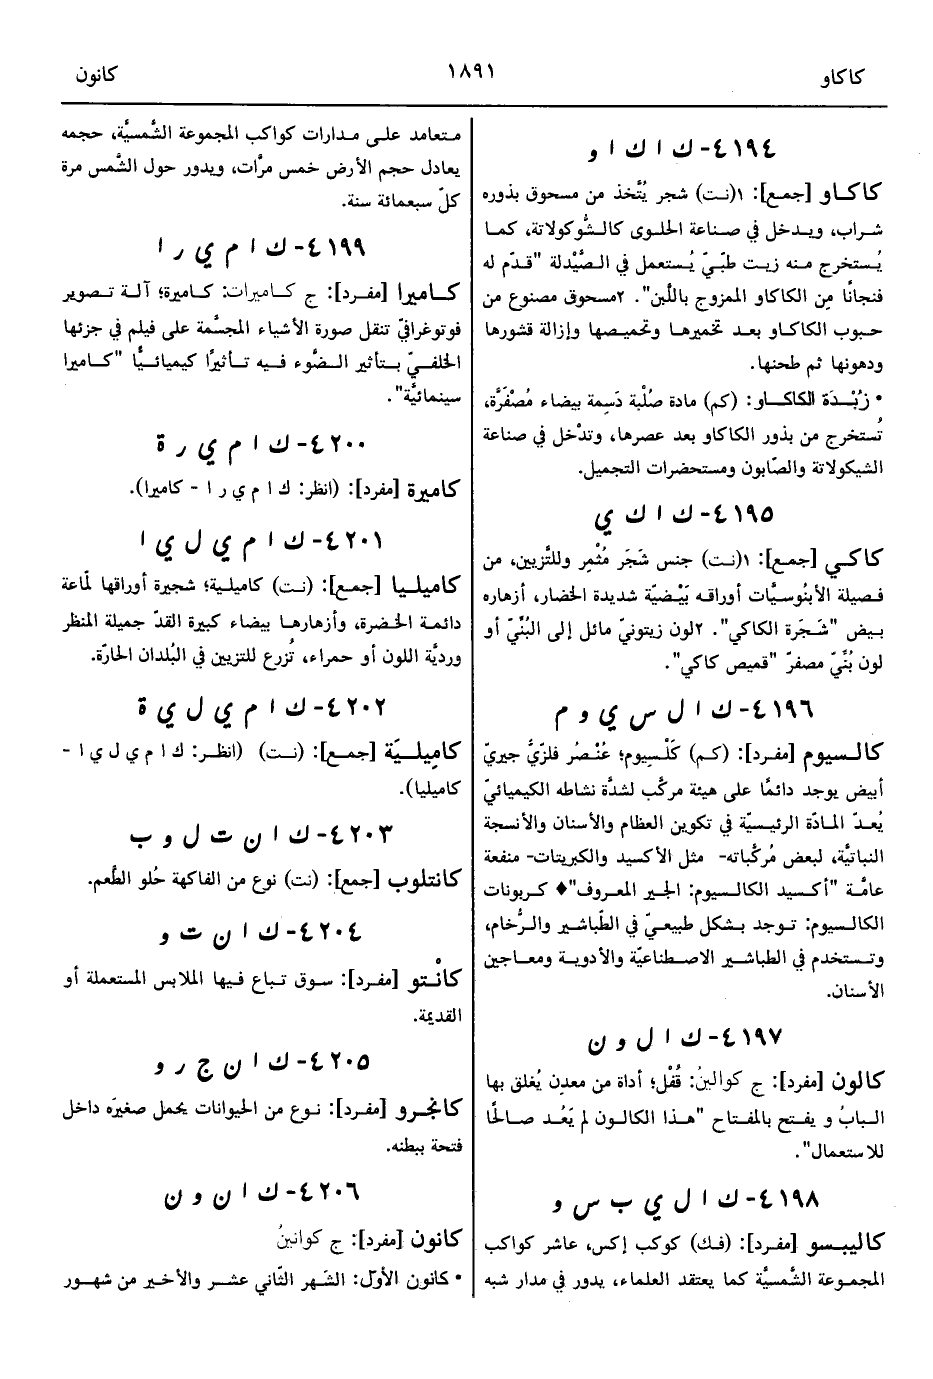 كاكاو
١٨٩١
كانون
٤١٩٤- ك ا ك ا و
كاكاو [جمع]: ١(نت) شجر يُتَّخذ من مسحوق بذوره
شراب، ويدخل في صناعة الحلوى كالشُّوكولاتة، كما
يُستخرج منه زيت طبّيّ يُستعمل في الصَّيْدلة "قدّم له
فنجانًا مِن الكاكاو الممزوج باللَّبن". ٢مسحوق مصنوع من
حبوب الكاكاو بعد تخميرها وتحميصها وإزالة قشورها
ودهونها ثم طحنها.
• زُبْدَة الكاكاو: (كم) مادة صُلْبة دَسِمة بيضاء مُصْفَرَّة،
تُستخرج من بذور الكاكاو بعد عصرها، وتدْخل في صناعة
الشيكولاتة والصّابون ومستحضرات التجميل.
٤١٩٥- ك ا ك ي
كاكي [جمع]: ١(نت) جنس شَجَر مُثْمِر وللتَّزيين، من
فصيلة الأبَنُوسيَّات أوراقه بَيْضيَّة شديدة الخضار، أزهاره
بيض "شَجَرة الكاكي". ٢لون زيتونيّ مائل إلى البُنّيّ أو
لون بُنّيّ مصفرّ "قميص كاكي".
٤١٩٦- ك ا ل س ي و م
كالسيوم [مفرد]: (كم) كَلْسِيوم؛ عُنْصُر فلزّيّ جيريّ
أبيض يوجد دائمًا على هيئة مركّب لشدَّة نشاطه الكيميائيّ
يُعدّ المادّة الرئيسيَّة في تكوين العظام والأسنان والأنسجة
النباتيَّة، لبعض مُركّباته- مثل الأكسيد والكبريتات- منفعة
عامَّة "أكسيد الكالسيوم: الجير المعروف"♦ كربونات
الكالسيوم: توجد بشكل طبيعيّ في الطَّباشير والرُّخام،
وتستخدم في الطباشير الاصطناعيَّة والأدوية ومعاجين
الأسنان.
٤١٩٧- ك ا ل و ن
كالون [مفرد]: ج كوالينُ: قُفْل؛ أداة من معدِن يُغلق بها
البابُ و يفتح بالمفتاح "هذا الكالون لم يَعُد صالحًا
للاستعمال".
٤١٩٨- ك ا ل ي ب س و
كاليبسو [مفرد]: (فك) كوكب إكس، عاشر كواكب
المجموعة الشَّمسيَّة كما يعتقد العلماء، يدور في مدار شبه
متعامد على مدارات كواكب المجموعة الشَّمسيَّة، حجمه
يعادل حجم الأرض خمس مرَّات، ويدور حول الشَّمس مرة
كلّ سبعمائة سنة.
٤١٩٩- ك ا م ي ر ا
كاميرا [مفرد]: ج كاميرات: كاميرة؛ آلة تصوير
فوتوغرافيّ تنقل صورة الأشياء المجسَّمة على فيلم في جزئها
الخلفيّ بتأثير الضُّوء فيه تأثيرًا كيميائيًّا "كاميرا
سينمائيَّة".
٤٢٠٠- ك ا م ي ر ة
كاميرة [مفرد]: (انظر: ك ا م ي ر ا - كاميرا).
٤٢٠١- ك ا م ي ل ي ا
كاميليا [جمع]: (نت) كاميلية؛ شجيرة أوراقها لمَّاعة
دائمة الخضرة، وأزهارها بيضاء كبيرة القدّ جميلة المنظر
ورديَّة اللون أو حمراء، تُزرع للتزيين في البُلدان الحارّة.
٤٢٠٢- ك ا م ي ل ي ة
كامِيليَّة [جمع]: (نت) (انظر: ك ا م ي ل ي ا -
كاميليا).
٤٢٠٣- ك ا ن ت ل و ب
كانتلوب [جمع]: (نت) نوع من الفاكهة حُلو الطَّعم.
٤٢٠٤- ك ا ن ت و
كانْتو [مفرد]: سوق تباع فيها الملابس المستعملة أو
القديمة.
٤٢٠٥- ك ا ن ج ر و
كانجرو [مفرد]: نوع من الحيوانات يحمل صغيرَه داخل
فتحة ببطنه.
٤٢٠٦- ك ا ن و ن
كانون [مفرد]: ج كوانينُ
• كانون الأوّل: الشَّهر الثّاني عشر والأخير من شهور